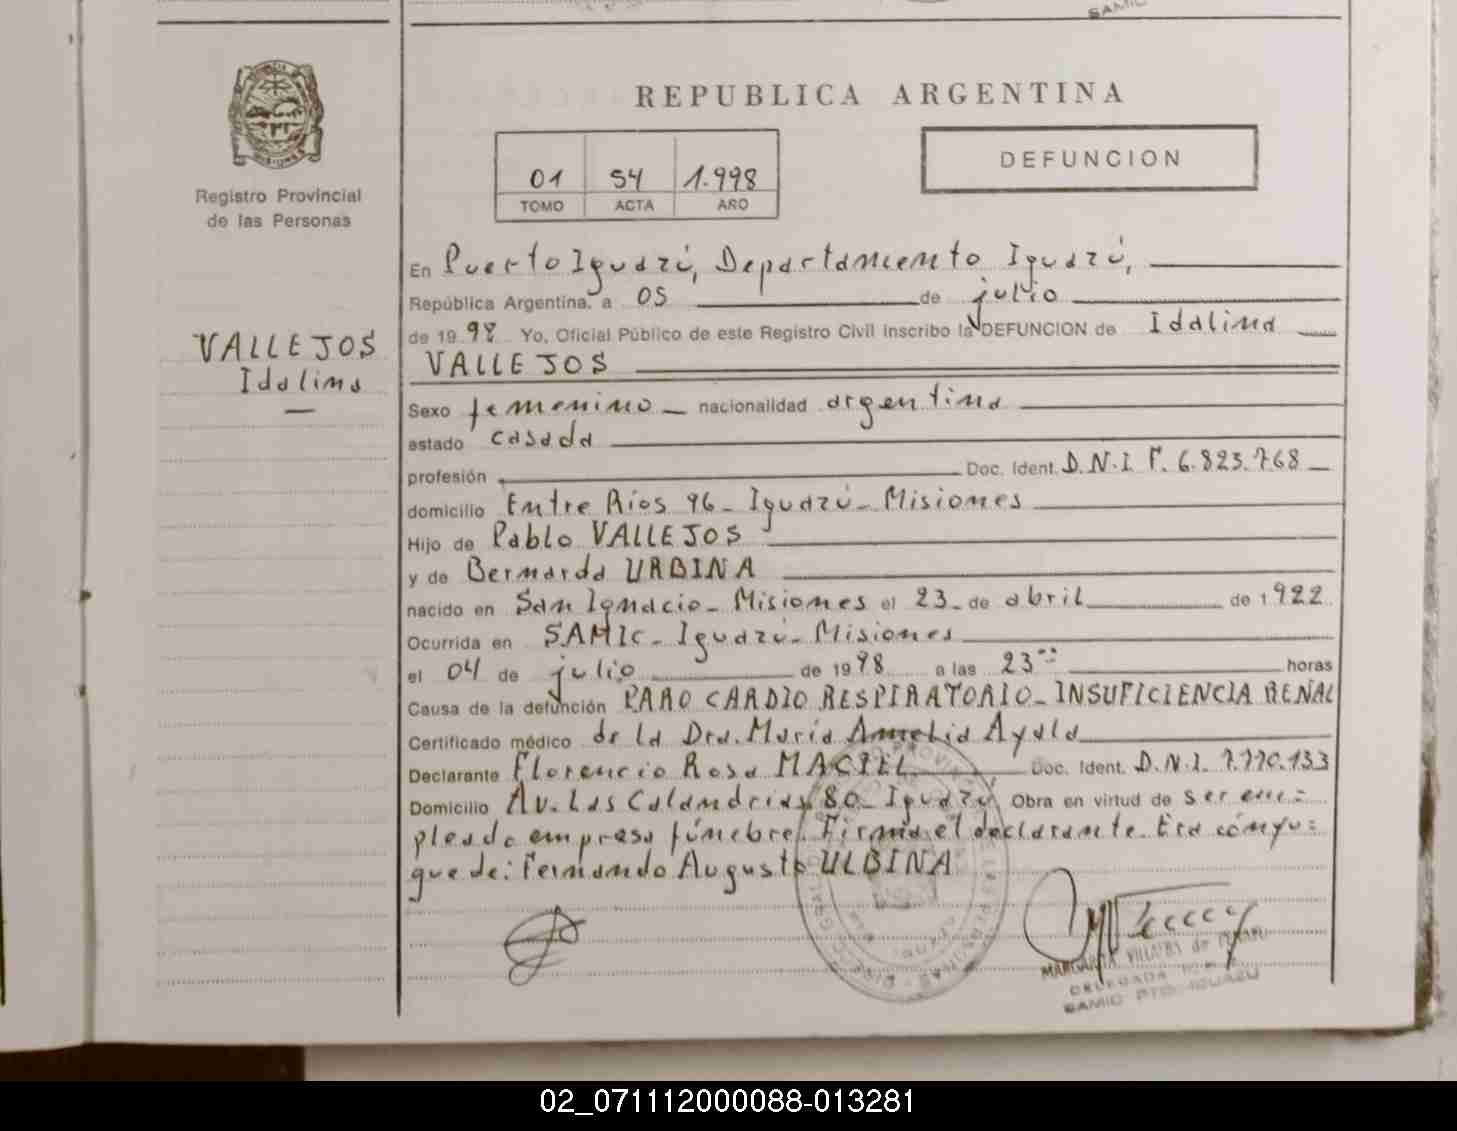 SAMIC
REPUBLICA ARGENTINA
DEFUNCION
01 54 1.998
TOMO ACTA AÑO
Registro Provincial
de las Personas
VALLEJOS
Idalina
En Puerto Iguazú, Departamento Iguazú,
República Argentina, a 05 de julio
de 1998 Yo, Oficial Público de este Registro Civil Inscribo la DEFUNCION de Idalina
VALLEJOS
Sexo femenino nacionalidad argentina
estado casada
profesión Doc. Ident. D.N.I F. 6.823.768
domicilio Entre Ríos 96 - Iguazú - Misiones
Hijo de Pablo VALLEJOS
y de Bernarda URBINA
nacido en San Ignacio - Misiones el 23 de abril de 1922
Ocurrida en SAMIC - Iguazú - Misiones
el 04 de julio de 1998 a las 23 horas
Causa de la defunción PARO CARDIO RESPIRATORIO - INSUFICIENCIA RENAL
Certificado médico de la Dra. María Amelia Ayala
Declarante Florencio Rosa MACIEL Doc. Ident. D.N.I. 7.770.133
Domicilio Av. Las Calandrias 80 - Iguazú Obra en virtud de ser em=
pleado empresa fúnebre. Firma el declarante. Era cónyu=
gue de: Fernando Augusto ULBINA
MARGARITA VILLALBA de
DELEGADA
SAMIC PTO. IGUAZU
02_071112000088-013281